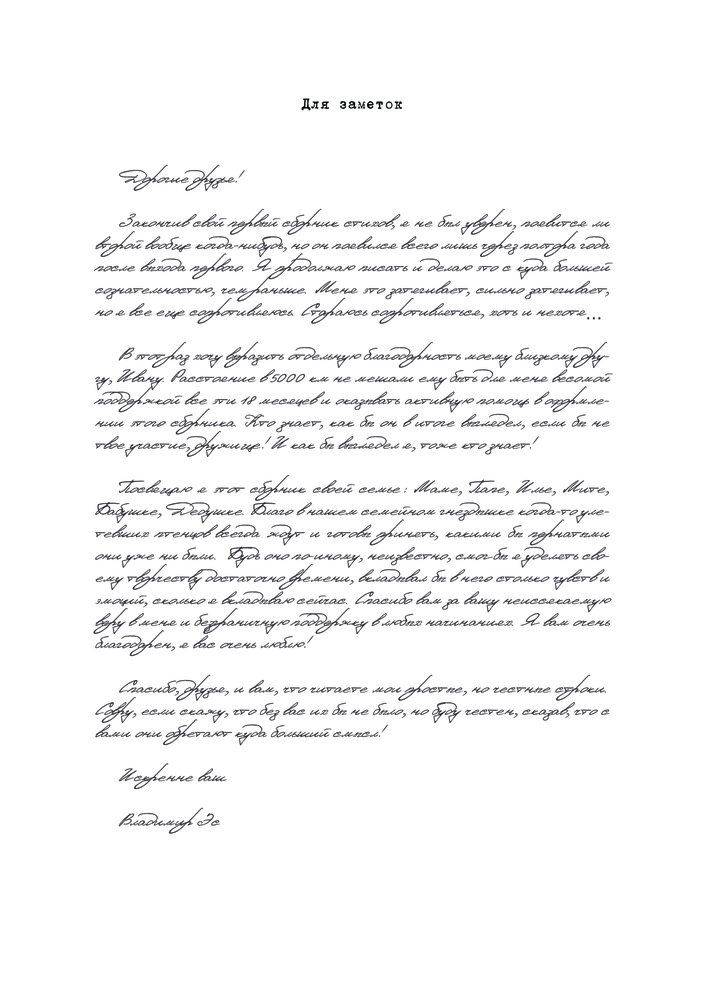 Для заметок
Дорогие друзья!
Закончив свой первый сборник стихов, я не был уверен, появится ли
второй вообще когда-нибудь, но он появился всего лишь через полтора года
после выхода первого. Я продолжаю писать и делаю это с куда большей
сознательностью, чем раньше. Меня это затягивает, сильно затягивает,
но я все еще сопротивляюсь. Стараюсь сопротивляться, хоть и нехотя...
В этот раз хочу выразить отдельную благодарность моему близкому дру-
гу, Ивану. Расстояние в 5000 км не мешали ему быть для меня весомой
поддержкой все эти 18 месяцев и оказывать активную помощь в оформле-
нии этого сборника. Кто знает, как бы он в итоге выглядел, если бы не
твое участие, дружище! И как бы выглядел я, тоже кто знает!
Посвящаю я этот сборник своей семье: Маме, Папе, Илье, Мите,
Бабушке, Дедушке. Благо в нашем семейном гнездышке когда-то уле-
тевших птенцов всегда ждут и готовы принять, какими бы пернатыми
они уже ни были. Будь оно по-иному, неизвестно, смог бы я уделять сво-
ему творчеству достаточно времени, вкладывал бы в него столько чувств и
эмоций, сколько я вкладываю сейчас. Спасибо вам за вашу неиссякаемую
веру в меня и безграничную поддержку в любых начинаниях. Я вам очень
благодарен, я вас очень люблю!
Спасибо, друзья, и вам, что читаете мои простые, но честные строки.
Совру, если скажу, что без вас их бы не было, но буду честен, сказав, что с
вами они обретают куда больший смысл!
Искренне ваш
Владимир Эс